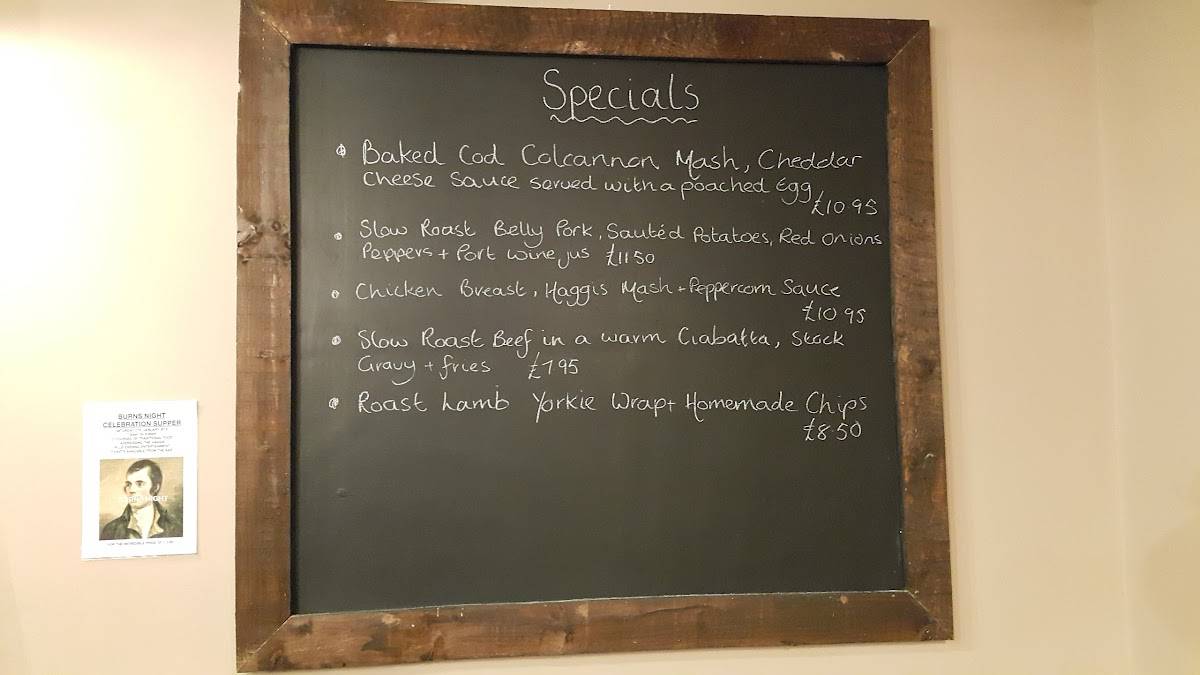 Specials
Baked Cod Colcannon Mash, Cheddar
Cheese Sauce served with a poached Egg
£10.95
Slow Roast Belly Pork, Sautéd Potatoes, Red Onions
Peppers + Port wine jus £11.50
Chicken Breast, Haggis Mash + Peppercorn Sauce
£10.95
Slow Roast Beef in a warm Ciabatta, Stock
Gravy + fries £7.95
Roast Lamb Yorkie Wrap + Homemade Chips
£8.50
BURNS NIGHT
CELEBRATION SUPPER